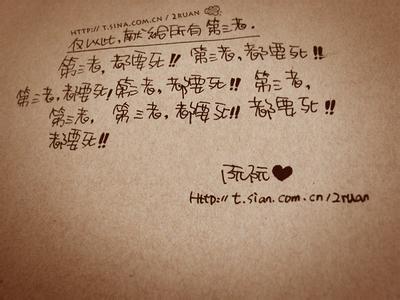 HTTP://T.SINA.COM.CN/2RUAN
仅以此,献给所有第三者.
第三者,都要死!! 第三者,都要死!!
第三者,都要死!第三者,都要死!! 第三者,
第三者, 第三者,都要死!! 都要死!!
都要死!!
阮阮❤
Http://t.sian.com.cn/2ruan